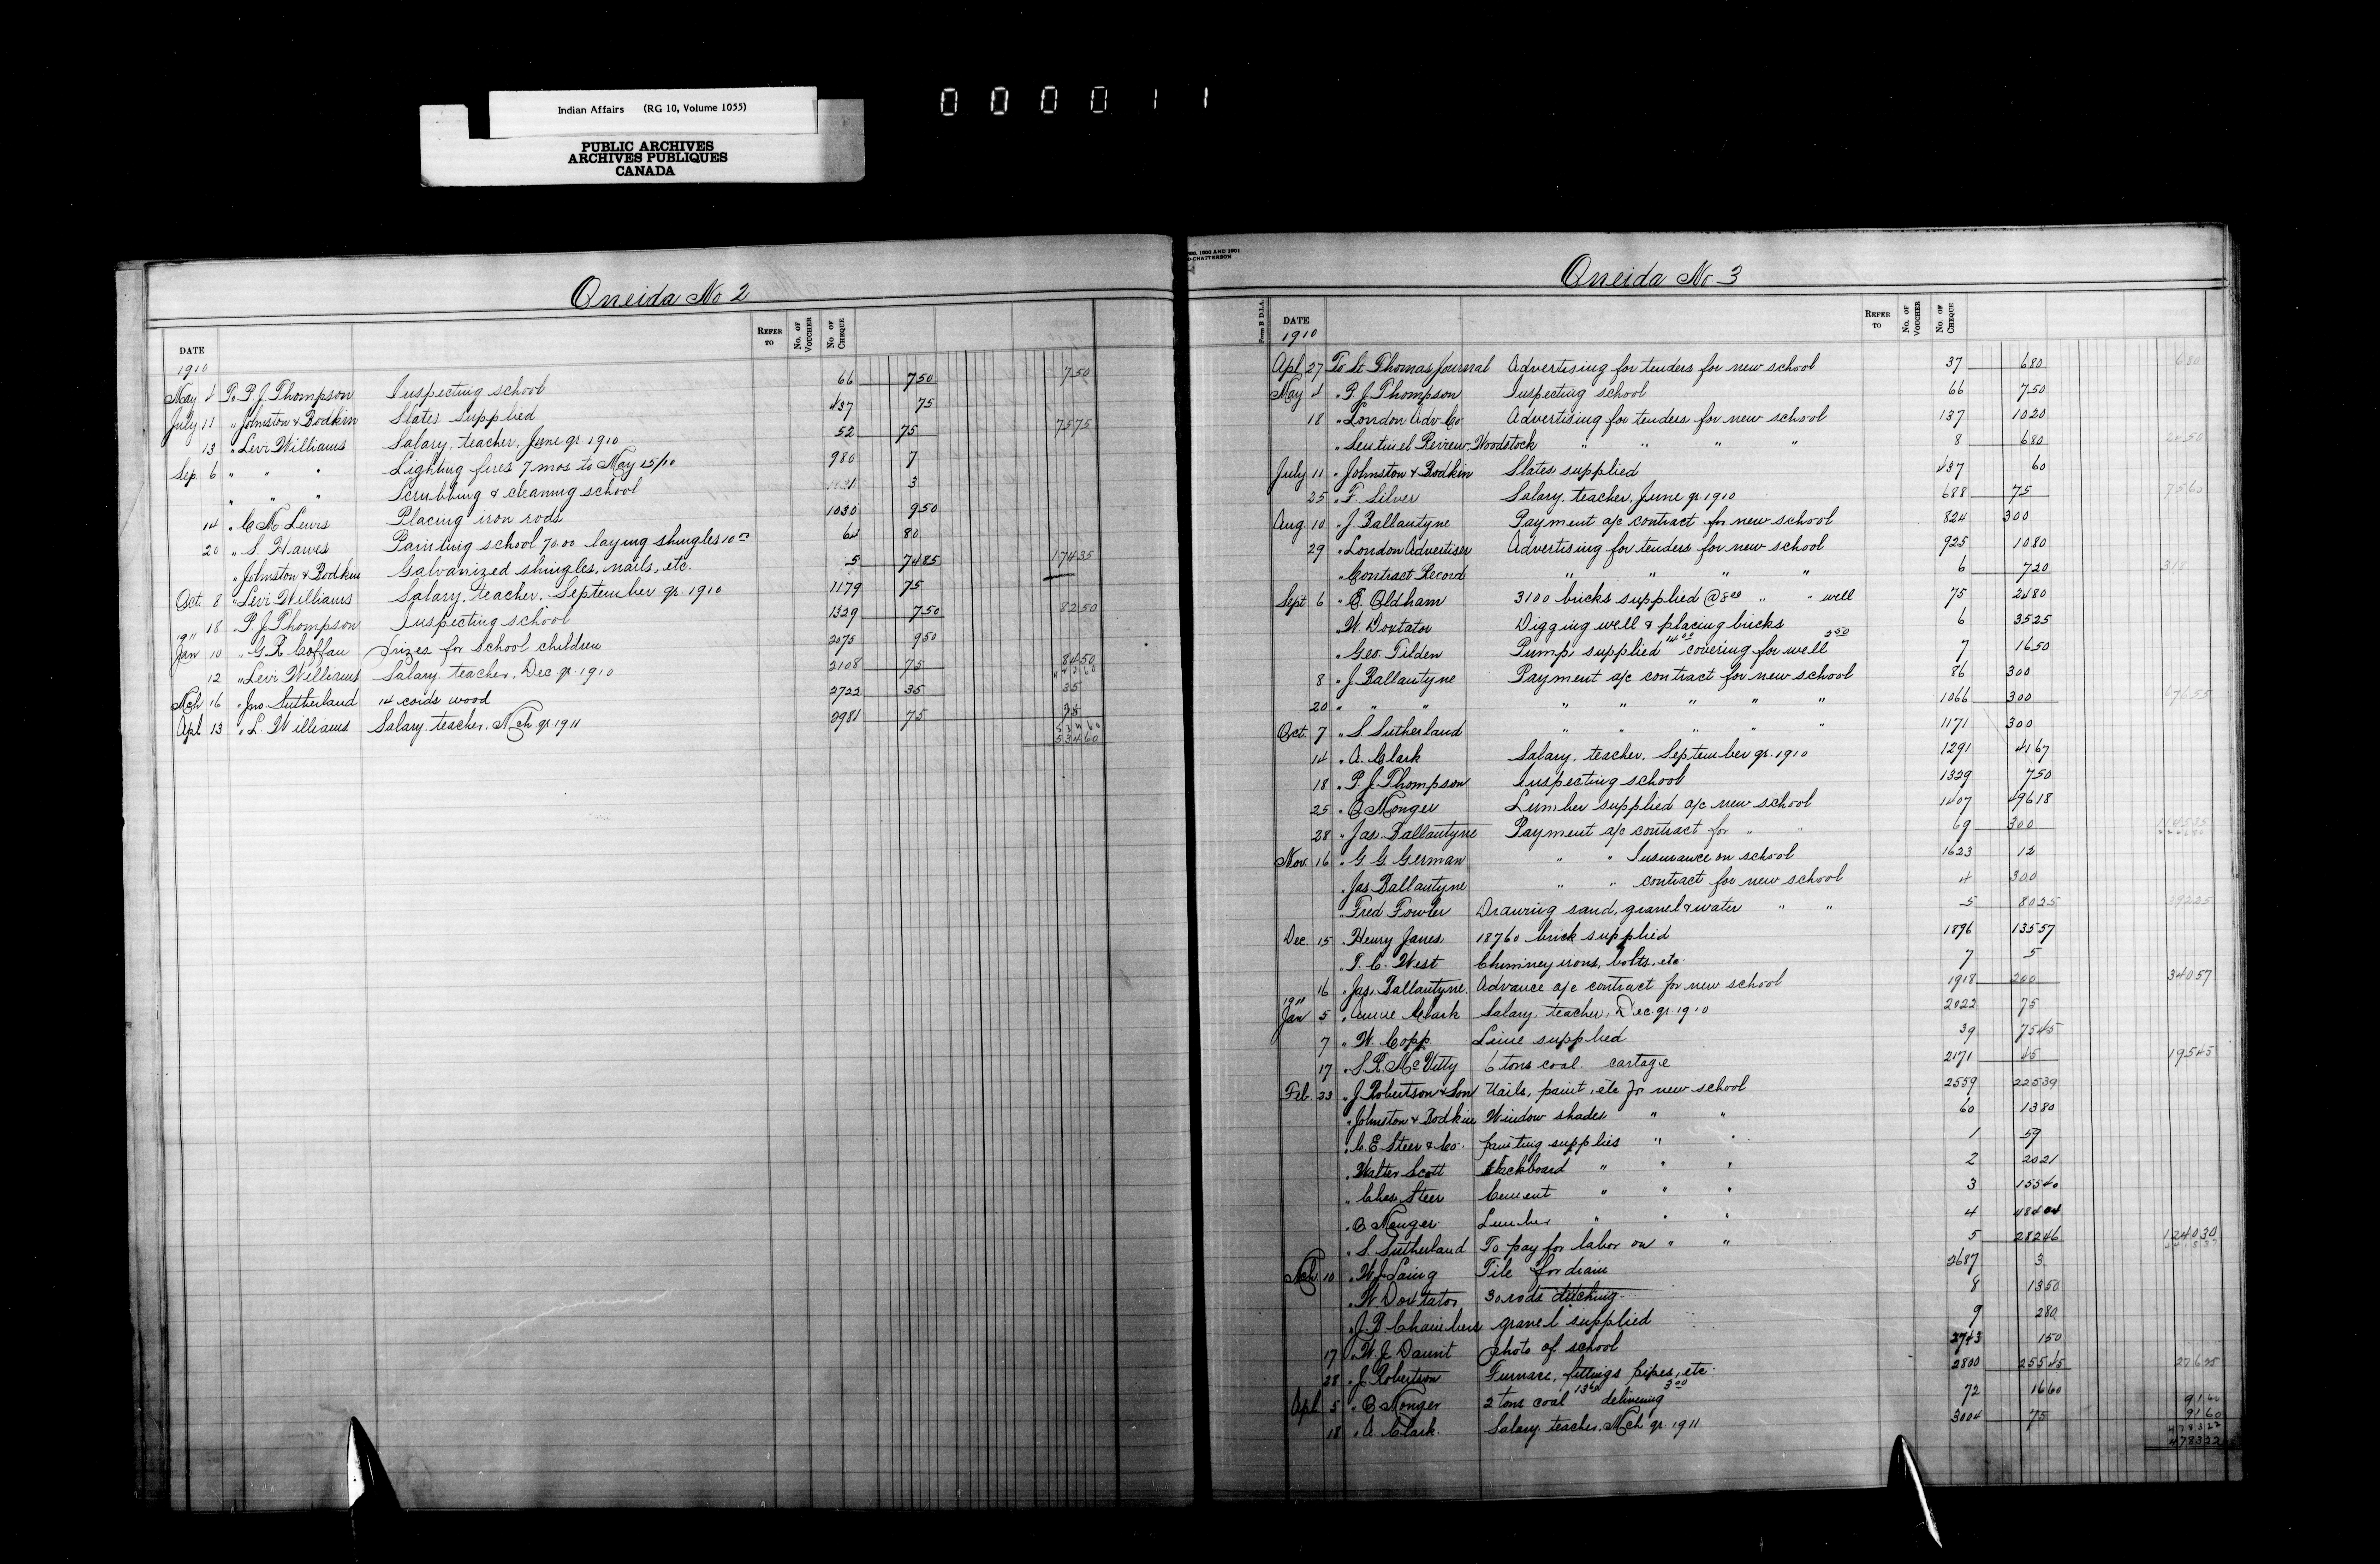 Indian Affairs (RG 10, Volume 1055)
PUBLIC ARCHIVES
ARCHIVES PUBLIQUES
CANADA
000011
Oneida No 2
DATE REFER TO No. OF VOUCHER No. OF CHEQUE
1910
May 4 To P. J. Thompson Inspecting school 66 7 50 7 50
July 11 " Johnston & Bodkin Slates supplied 437 75
13 " Levi Williams Salary, teacher, June qr. 1910 52 75 75 75
Sep. 6 " " " Lighting fires 7 mos to May 15/10 980 7
" " " Scrubbing & cleaning school 3
14 " C. N. Lewis Placing iron rods 1030 9 50
20 " S. Hawes Painting school 70.00 laying shingles 10 00 64 80
" Johnston & Bodkin Galvanized shingles, nails, etc. 5 74 85 174 35
Oct. 8 " Levi Williams Salary, teacher, September qr. 1910 1179 75
18 " P. J. Thompson Inspecting school 1329 7 50 82 50
1911
Jan 10 " G. R. Coffau Prizes for school children 2075 9 50
12 " Levi Williams Salary, teacher, Dec qr. 1910 2108 75 84 50
Mch 16 " Jno. Sutherland 14 cords wood 2722 35 35
Apl 13 " L. Williams Salary, teacher, Mch qr 1911 2981 75 75
534 60
534 60
1900 AND 1901
O-CHATTERSON
Oneida No. 3
Form B D.I.A. DATE REFER TO No. OF VOUCHER No. OF CHEQUE
1910
Apl 27 To St. Thomas Journal Advertising for tenders for new school 37 6 80 6 80
May 4 " P. J. Thompson Inspecting school 66 7 50
18 " London Adv. Co Advertising for tenders for new school 137 10 20
" Sentinel Review, Woodstock " " " " 8 6 80 24 50
July 11 " Johnston & Bodkin Slates supplied 437 60
25 " F. Silver Salary, teacher, June qr. 1910 688 75 75 60
Aug. 10 " J. Ballantyne Payment a/c contract for new school 824 300
29 " London Advertiser Advertising for tenders for new school 925 10 80
" Contract Record " " " " 6 7 20 318
Sept 6 " E. Oldham 3100 bricks supplied @ 8 00 " " well 75 24 80
" W. Doxtator Digging well & placing bricks 6 35 25
" Geo. Tilden Pump supplied 14 00 covering for well 2 50 7 16 50
8 " J. Ballantyne Payment a/c contract for new school 86 300
20 " " " " " " " " 1066 300 676 55
Oct. 7 " S. Sutherland " " " " 1171 300
14 " A. Clark Salary, teacher, September qr. 1910 1291 41 67
18 " P. J. Thompson Inspecting school 1329 7 50
25 " C. Monger Lumber supplied a/c new school 1407 496 18
28 " Jas. Ballantyne Payment a/c contract for " " 69 300 1145 35
Nov. 16 " G. G. German " " Insurance on school 1623 12
" Jas Ballantyne " " contract for new school 4 300
" Fred Fowler Drawing sand, gravel & water " " 5 80 25 392 25
Dec. 15 " Henry Janes 18760 brick supplied 1896 135 57
" T. C. West Chimney irons, bolts, etc. 7 5
16 " Jas. Ballantyne Advance a/c contract for new school 1918 200 340 57
1911
Jan 5 " Annie Clark Salary, teacher, Dec. qr. 1910 2022 75
7 " W. Copp Lime supplied 39 75 45
17 " S. R. McVitty 6 tons coal. cartage 2171 45 195 45
Feb. 23 " J. Robertson & Son Nails, paint, etc for new school 2559 225 39
" Johnston & Bodkin Window shades " " 60 13 80
" C. E. Steer & Co. Painting supplies " " 1 59
" Walter Scott Blackboard " " " 2 20 21
" Chas. Steer Cement " " " 3 155 40
" C. Monger Lumber " " " 4 484 04
" S. Sutherland To pay for labor on " " 5 282 46 1240 30
Mch 10 " W. J. Laing Tile for drain 2687 3
" W. Doxtator 30 rods ditching 8 13 50
" J. B. Chambers gravel supplied 9 2 80
17 " W. J. Daunt photo of school 2743 1 50
28 " J. Robertson Furnace, fittings pipes, etc. 2800 255 45
Apl. 5 " C. Monger 2 tons coal 13 60 delivering 3 00 72 16 60
18 " A. Clark. Salary, teacher, Mch qr. 1911 3004 75 91 60
91 60
4783 22
4783 22